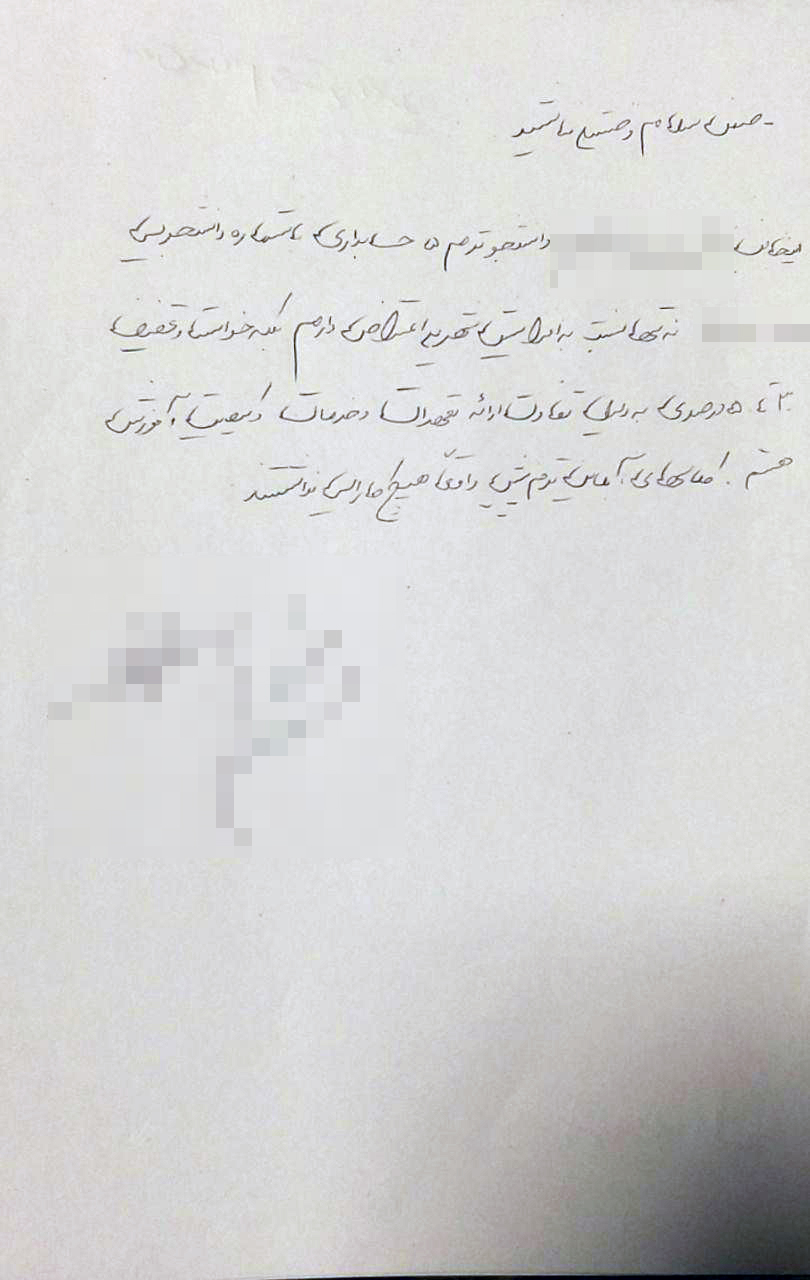 ضمن سلام و خسته نباشید
اینجانب دانشجو ترم ۵ حسابداری با شماره دانشجویی
نه تنها نسبت به افزایش شهریه اعتراض دارم بلکه خواستار تخفیف
۳۰ تا ۵۰ درصدی به دلیل تفاوت ارائه تعهدات و خدمات و کیفیت آموزشی
هستم. کلاسهای آنلاین ترم پیش واقعا هیچ کارایی نداشتند